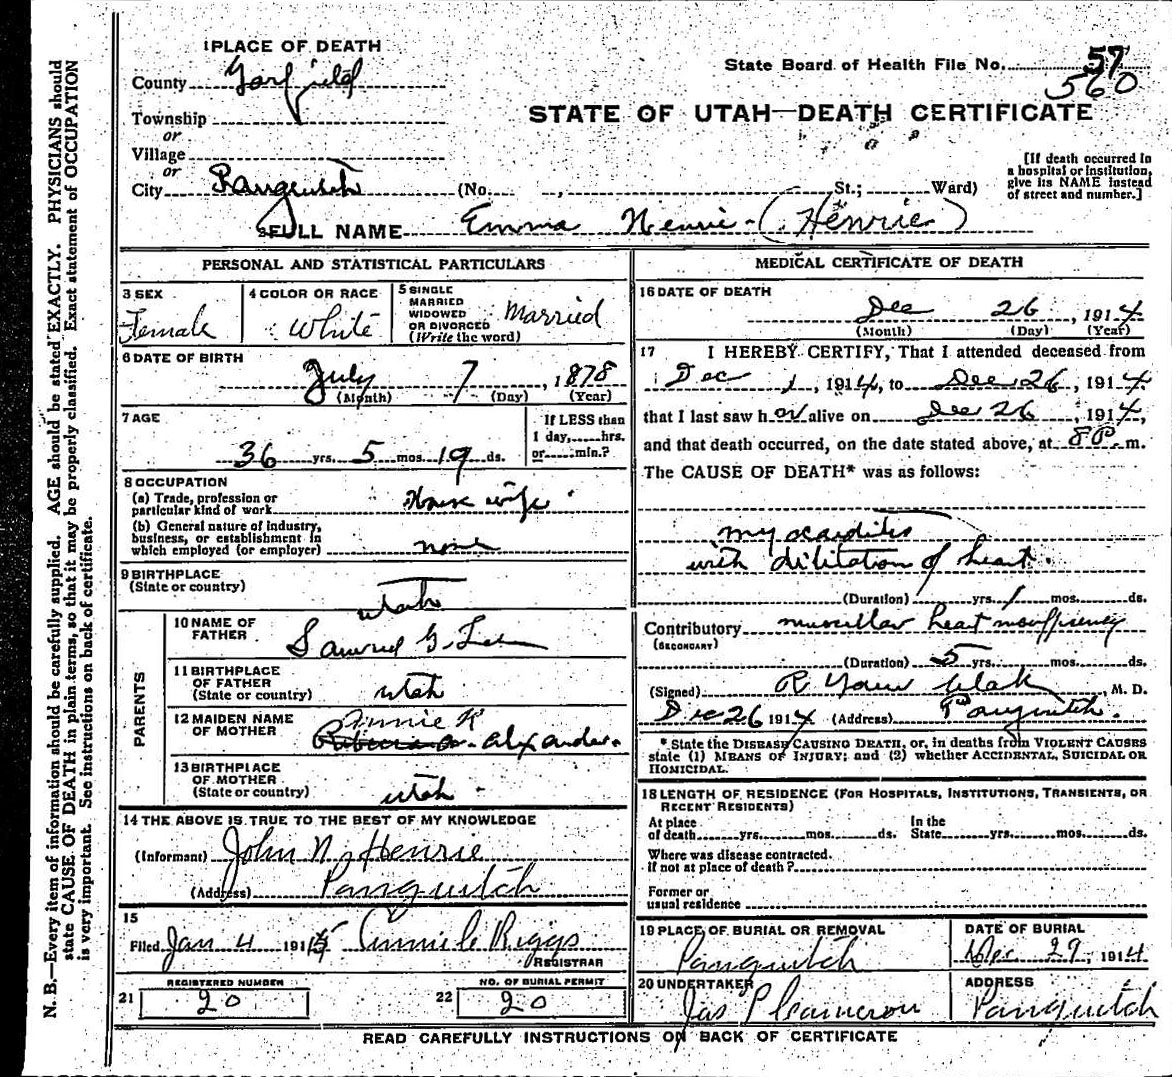 N. B.—Every item of information should be carefully supplied. AGE should be stated EXACTLY. PHYSICIANS should
state CAUSE OF DEATH in plain terms, so that it may be properly classified. Exact statement of OCCUPATION
is very important. See instructions on back of certificate.
1 PLACE OF DEATH
County Garfield
Township
or
Village
or
City Panguitch (No. , St.; Ward)
State Board of Health File No. 57
560
STATE OF UTAH—DEATH CERTIFICATE
[If death occurred in
a hospital or institution,
give its NAME instead
of street and number.]
2 FULL NAME Emma Henrie - (Henrie)
PERSONAL AND STATISTICAL PARTICULARS
3 SEX
Female
4 COLOR OR RACE
White
5 SINGLE
MARRIED
WIDOWED
OR DIVORCED
(Write the word)
Married
6 DATE OF BIRTH
July 7, 1878
(Month) (Day) (Year)
7 AGE
36 yrs. 5 mos. 19 ds.
If LESS than
1 day, hrs.
or min.?
8 OCCUPATION
(a) Trade, profession or
particular kind of work House wife
(b) General nature of industry,
business, or establishment in
which employed (or employer) none
9 BIRTHPLACE
(State or country)
Utah
PARENTS
10 NAME OF
FATHER Samuel G.
11 BIRTHPLACE
OF FATHER
(State or country) Utah
12 MAIDEN NAME
OF MOTHER
Annie R
Alexander.
13 BIRTHPLACE
OF MOTHER
(State or country) Utah
14 THE ABOVE IS TRUE TO THE BEST OF MY KNOWLEDGE
(Informant) John N. Henrie
(Address) Panguitch
15
Filed Jan 4 1915 Riggs
REGISTRAR
REGISTERED NUMBER
21 20
NO. OF BURIAL PERMIT
22 20
MEDICAL CERTIFICATE OF DEATH
16 DATE OF DEATH
Dec 26, 1914
(Month) (Day) (Year)
17 I HEREBY CERTIFY, That I attended deceased from
Dec 1, 1914, to Dec 26, 1914
that I last saw her alive on Dec 26 1914,
and that death occurred, on the date stated above, at 8 P. m.
The CAUSE OF DEATH* was as follows:
myocarditis
with dilitation of heart.
(Duration) yrs. 1 mos. ds.
Contributory muscular heart insufficiency
(SECONDARY)
(Duration) 5 yrs. mos. ds.
(Signed) R , M. D.
Dec 26 1914 (Address) Panguitch.
* State the DISEASE CAUSING DEATH, or, in deaths from VIOLENT CAUSES
state (1) MEANS OF INJURY; and (2) whether ACCIDENTAL, SUICIDAL OR
HOMICIDAL.
18 LENGTH OF RESIDENCE (FOR HOSPITALS, INSTITUTIONS, TRANSIENTS, OR
RECENT RESIDENTS)
At place
of death yrs. mos. ds.
In the
State yrs. mos. ds.
Where was disease contracted.
if not at place of death?
Former or
usual residence
19 PLACE OF BURIAL OR REMOVAL
Panguitch
DATE OF BURIAL
Dec. 29, 1914
20 UNDERTAKER
Jas P Cameron
ADDRESS
Panguitch
READ CAREFULLY INSTRUCTIONS ON BACK OF CERTIFICATE